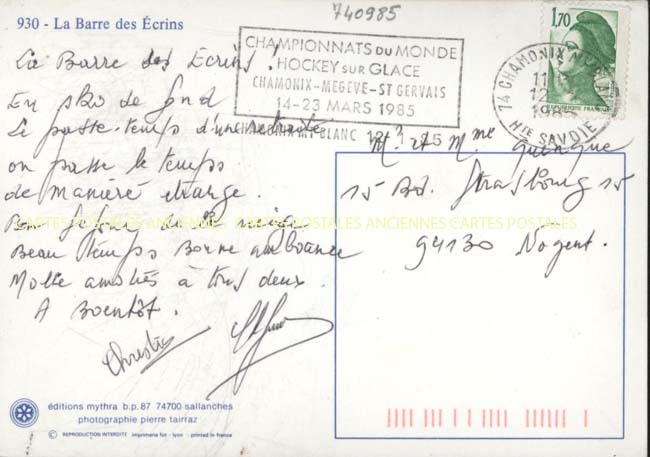 740985
930 - La Barre des Écrins
CHAMPIONNATS DU MONDE
HOCKEY SUR GLACE
CHAMONIX-MEGÈVE-ST GERVAIS
14-23 MARS 1985
CHAMONIX-MT-BLANC
1,70
REPUBLIQUE FRANCAISE
74 CHAMONIX M
HTE SAVOIE
La Barre des Ecrins !
En skis de fond
Le passe-temps d'une retraite
on passe le temps
de manière étrange.
Bon séjour de neige
Beau temps Bonne ambiance
Mille amitiés à tous deux.
A Bientôt.
Christia
Mr et Mme
15 Bd. Strasbourg 15
94130 Nogent.
CARTES POSTALES ANCIENNES CARTES POSTALES ANCIENNES CARTES POSTALES
éditions mythra b.p. 87 74700 sallanches
photographie pierre tairraz
© REPRODUCTION INTERDITE imprimerie fot - lyon - printed in france